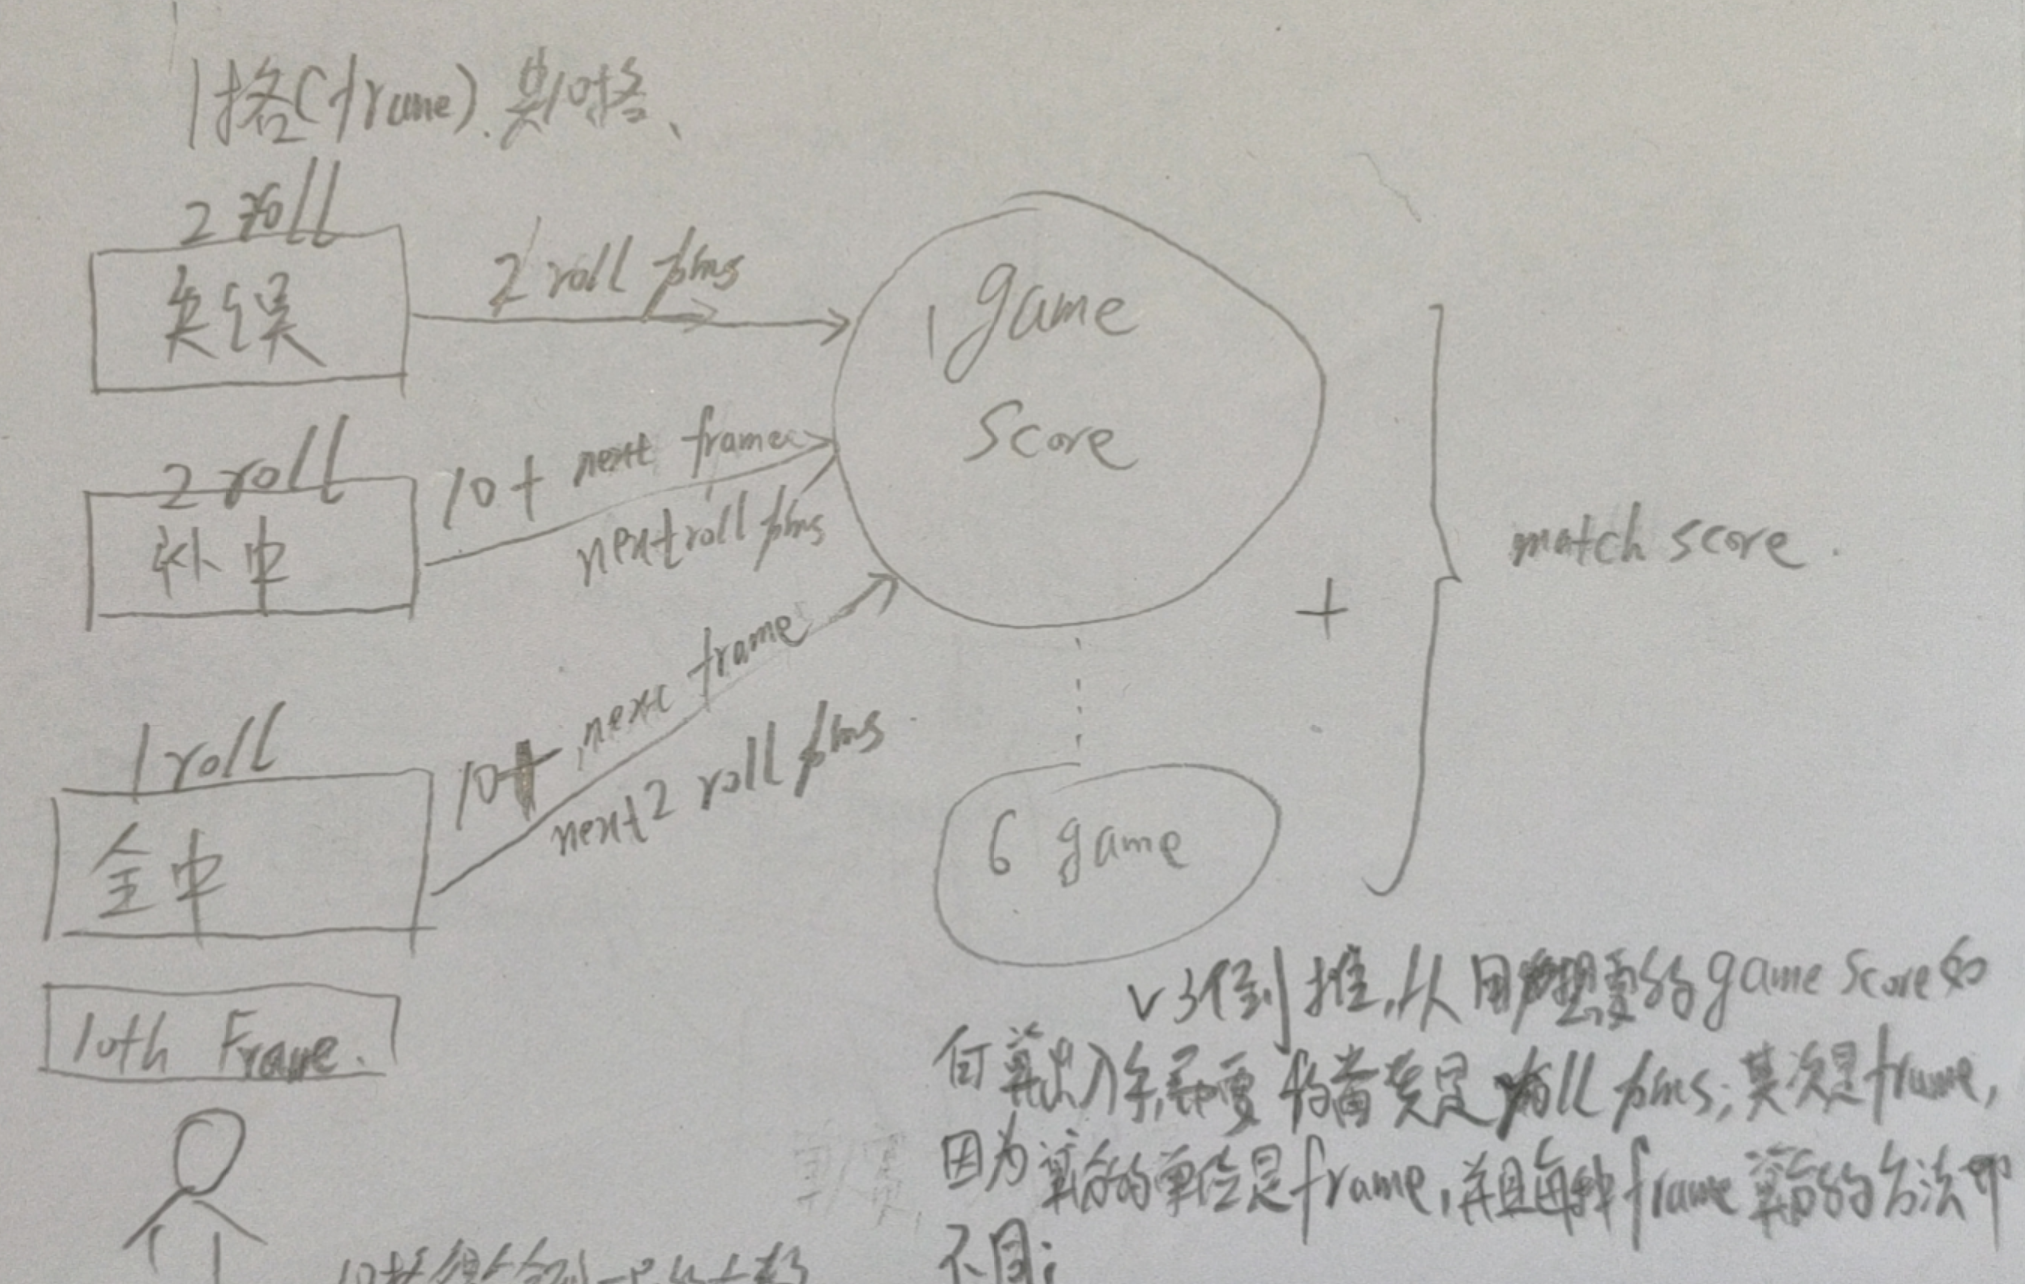 1格(frame).共10格、
2 roll
失误
2 roll pins
1 game
score
2 roll
补中
10+ next frame
next roll pins
match score.
+
1 roll
全中
10+ next frame
next 2 roll pins
6 game
10th Frame.
v3倒推,从用户想要的game score如
何算出入手,需要的首先是roll pins;其次是frame,
因为算分的单位是frame,并且每种frame算分的方法都
不同;
10格得分